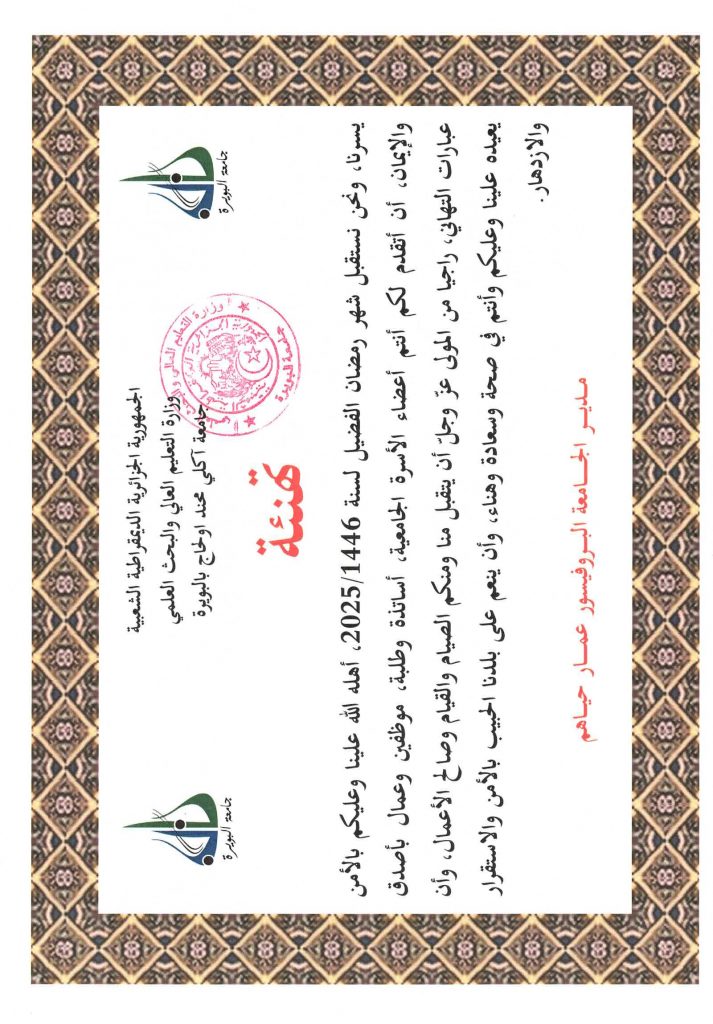 الجمهورية الجزائرية الديمقراطية الشعبية
وزارة التعليم العالي والبحث العلمي
جامعة آكلي محند اولحاج بالبويرة
جامعة البويرة
جامعة البويرة
وزارة التعليم العالي والبحث
جامعة البويرة
تهنئة
يسرنا، ونحن نستقبل شهر رمضان الفضيل لسنة 2025/1446، أهله الله علينا وعليكم بالأمن
والإيمان، أن أتقدم لكم أنتم أعضاء الأسرة الجامعية، أساتذة وطلبة، موظفين وعمال بأصدق
عبارات التهاني، راجيا من المولى عزّ وجلّ أن يتقبل منا ومنكم الصيام والقيام وصالح الأعمال، وأن
يعيده علينا وعليكم وأنتم في صحة وسعادة وهناء، وأن ينعم على بلدنا الحبيب بالأمن والاستقرار
والازدهار.
مدير الجامعة البروفيسور عمار حياهم